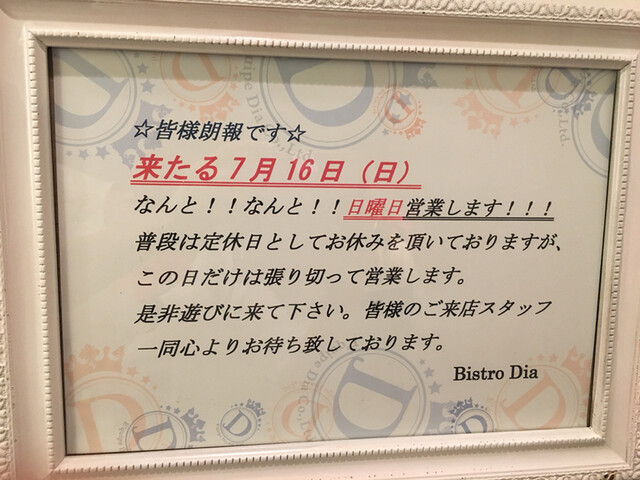 ☆皆様朗報です☆
来たる7月16日（日）
なんと！！なんと！！日曜日営業します！！！
普段は定休日としてお休みを頂いておりますが、
この日だけは張り切って営業します。
是非遊びに来て下さい。皆様のご来店スタッフ
一同心よりお待ち致しております。
Bistro Dia